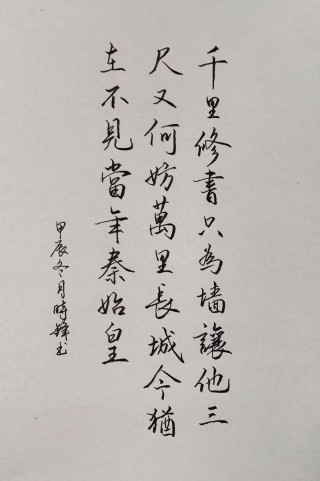 千里修書只為墙讓他三
尺又何妨萬里長城今猶
在不見當年秦始皇
甲辰冬月時鋒书